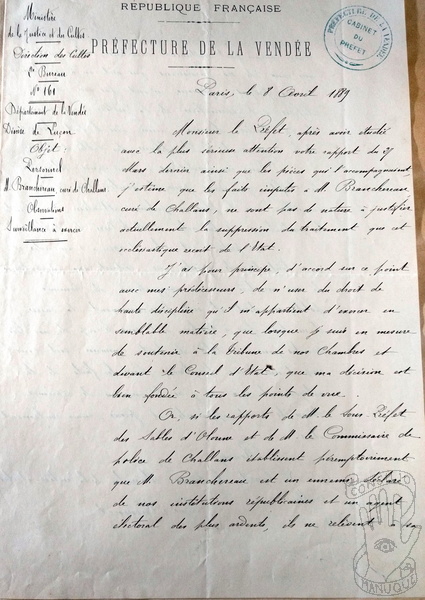 RÉPUBLIQUE FRANÇAISE
PRÉFECTURE DE LA VENDÉE
PRÉFECTURE DE LA VENDÉE
CABINET
DU
PRÉFET
Ministère
de la Justice et des Cultes
Direction des Cultes
Bureau
N° 161
Département de la Vendée
Diocèse de Luçon
Objet:
Personnel
M. Branchereau, curé de Challans
Observations
Surveillance à exercer
Paris, le 8 Avril 1889
Monsieur le Préfet, après avoir étudié
avec la plus sérieuse attention votre rapport du 27
Mars dernier ainsi que les pièces qui l'accompagnaient
j'estime que les faits imputés à M. Branchereau
curé de Challans, ne sont pas de nature à justifier
actuellement la suppression du traitement que cet
ecclésiastique reçoit de l'Etat.
J'ai pour principe, d'accord sur ce point
avec mes prédécesseurs, de n'user du droit de
haute discipline qu'il m'appartient d'exercer en
semblable matière, que lorsque je suis en mesure
de soutenir à la tribune de nos Chambres et
devant le Conseil d'Etat, que ma décision est
bien fondée à tous les points de vue.
Or, si les rapports de M. le Sous-Préfet
des Sables d'Olonne et de M. le Commissaire de
police de Challans établissent péremptoirement
que M. Branchereau est un ennemi déclaré
de nos institutions républicaines et un agent
électoral des plus ardents, ils ne relèvent à sa
CONSEJO
MANUQUE